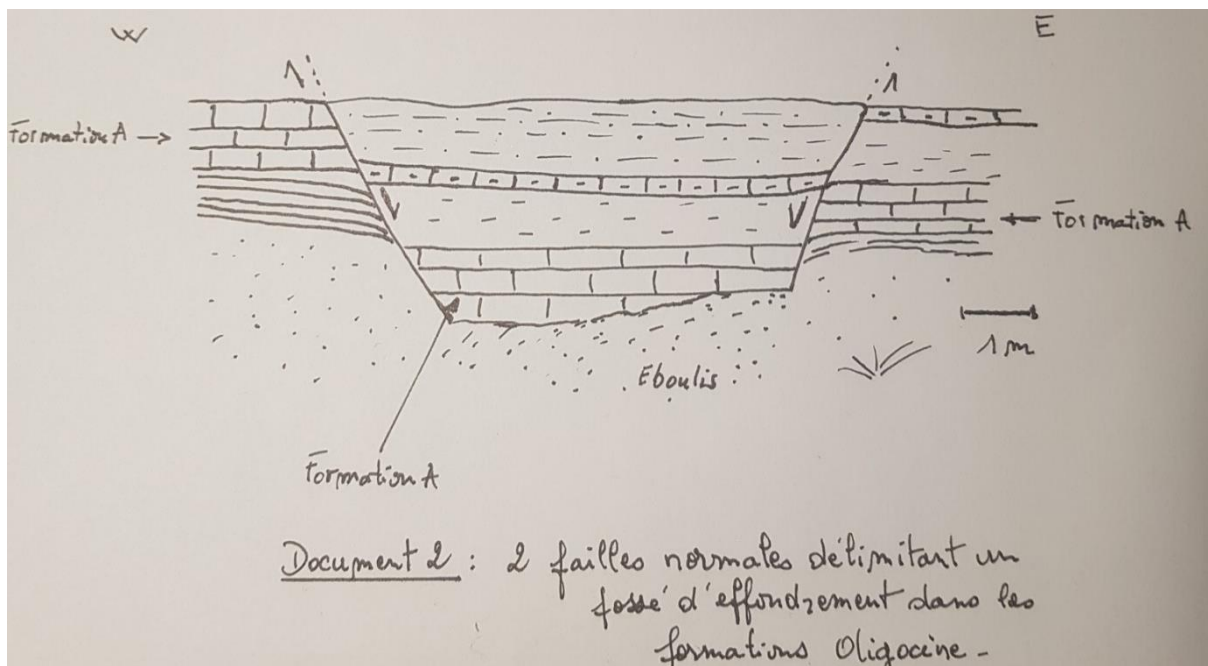 W
E
Formation A →
← Formation A
1 m
Eboulis
Formation A
Document 2 : 2 failles normales délimitant un
fossé d'effondrement dans les
formations Oligocine -